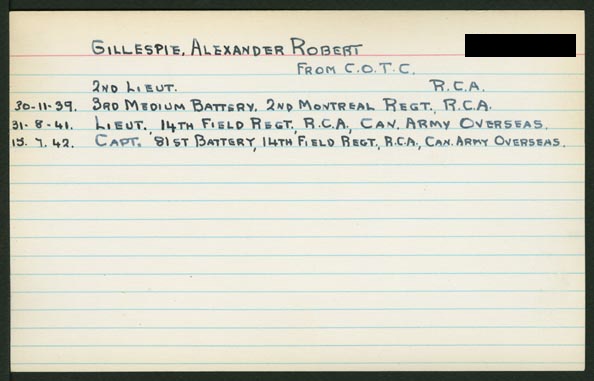 GILLESPIE, ALEXANDER ROBERT
FROM C.O.T.C.
2ND LIEUT. R.C.A.
30-11-39. 3RD MEDIUM BATTERY, 2ND MONTREAL REGT., R.C.A.
31-8-41. LIEUT., 14TH FIELD REGT., R.C.A., CAN. ARMY OVERSEAS.
15.7.42. CAPT. 81ST BATTERY, 14TH FIELD REGT., R.C.A., CAN. ARMY OVERSEAS.